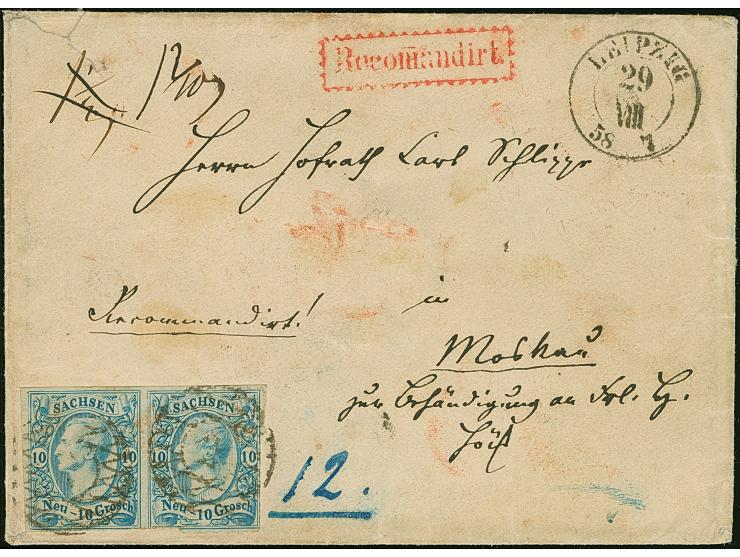 Recomandirt
LEIPZIG
29
VIII
58 7
Herrn Hofrath Carl Schlippe
in
Recommandirt!
Moskau
zur Behändigung an Frl. H.
SACHSEN
10 10
Neu-10 Grosch
SACHSEN
10 10
Neu-10 Grosch
12.